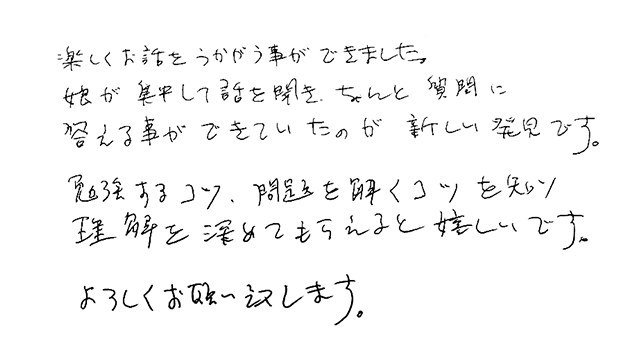 楽しくお話をうかがう事ができました。
娘が集中して話を聞き、ちゃんと質問に
答える事ができていたのが新しい発見です。
勉強するコツ、問題を解くコツを知り
理解を深めてもらえると嬉しいです。
よろしくお願い致します。